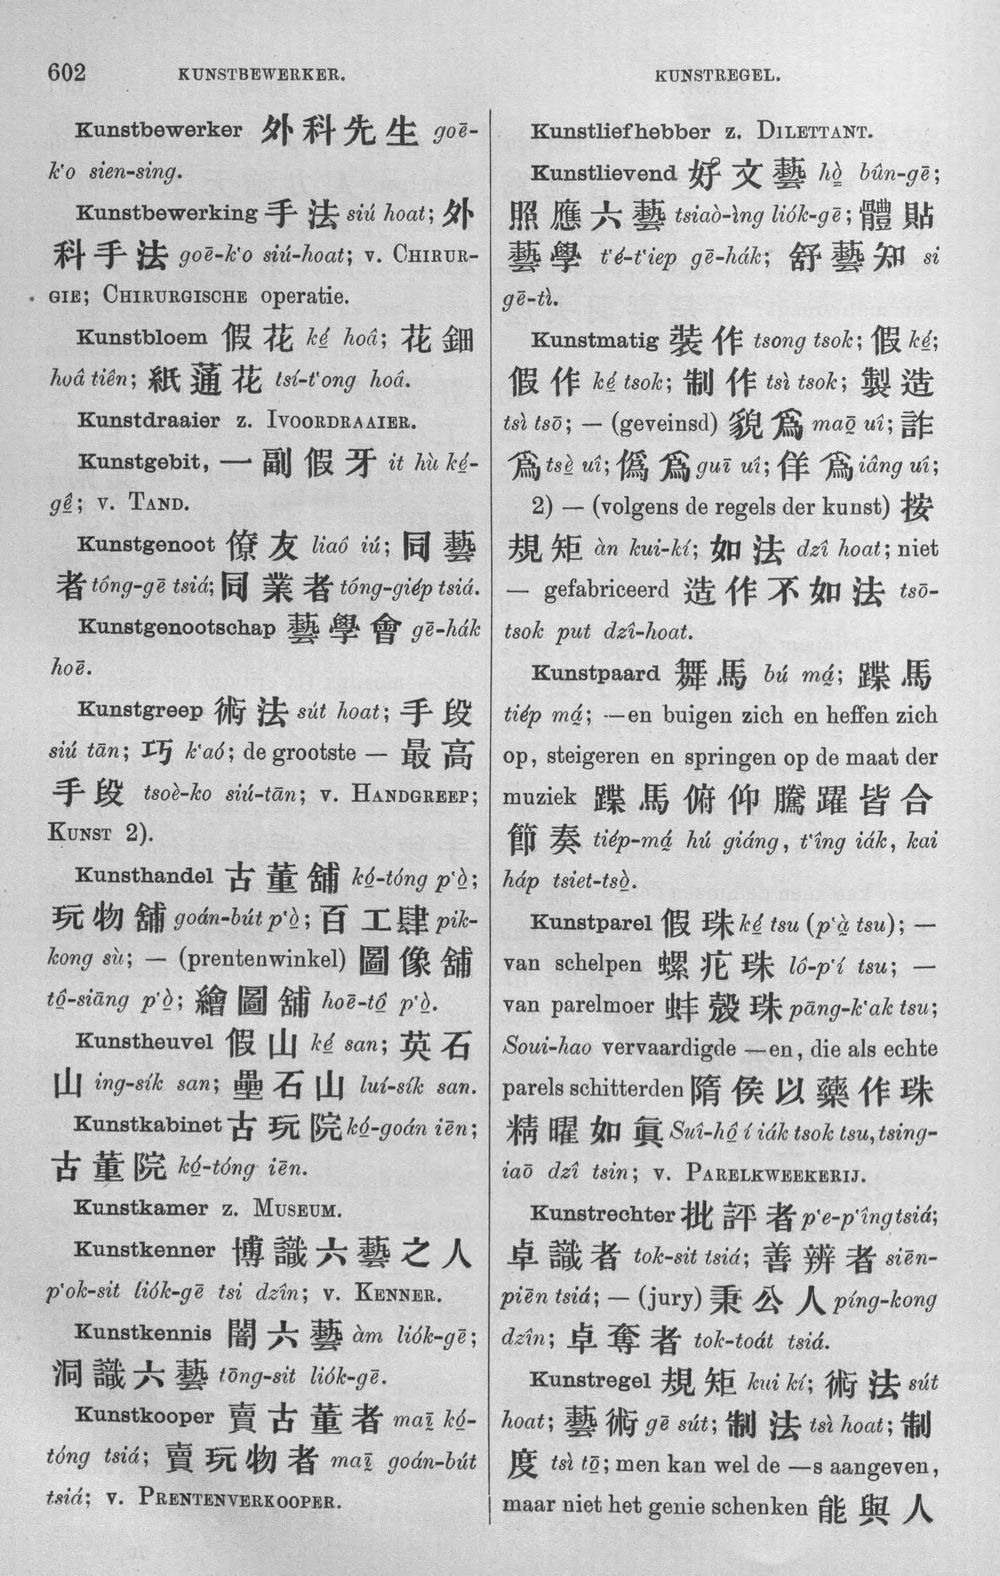 602 KUNSTBEWERKER. KUNSTREGEL.
Kunstbewerker 外科先生 goē-
k‘o sien-sing.
Kunstbewerking 手法 siú hoat; 外
科手法 goē-k‘o siú-hoat; v. CHIRUR-
GIE; CHIRURGISCHE operatie.
Kunstbloem 假花 ké̱ hoâ; 花鈿
hoâ tiên; 紙蓪花 tsí-t‘ong hoâ.
Kunstdraaier z. IVOORDRAAIER.
Kunstgebit, 一副假牙 it hù ké̱-
gê̱; v. TAND.
Kunstgenoot 僚友 liaô iú; 同藝
者 tông-gē tsiá; 同業者 tóng-giép tsiá.
Kunstgenootschap 藝學會 gē-hák
hoē.
Kunstgreep 術法 sút hoat; 手段
siú tān; 巧 k‘aó; de grootste — 最高
手段 tsoè-ko siú-tān; v. HANDGREEP;
KUNST 2).
Kunsthandel 古董舖 kó̱-tóng p‘ò̱;
玩物舖 goán-bút p‘ò̱; 百工肆 pik-
kong sù; — (prentenwinkel) 圖像舖
tô̱-siāng p‘ò̱; 繪圖舖 hoē-tô̱ p‘ò̱.
Kunstheuvel 假山 ké̱ san; 英石
山 ing-sík san; 壘石山 luí-sík san.
Kunstkabinet 古玩院 kó̱-goán iēn;
古董院 kó̱-tóng iēn.
Kunstkamer z. MUSEUM.
Kunstkenner 博識六藝之人
p‘ok-sit liók-gē tsi dzîn; v. KENNER.
Kunstkennis 闇六藝 àm liók-gē;
洞識六藝 tōng-sit liók-gē.
Kunstkooper 賣古董者 maī̱ kó̱-
tóng tsiá; 賣玩物者 maī̱ goán-bút
tsiá; v. PRENTENVERKOOPER.
Kunstliefhebber z. DILETTANT.
Kunstlievend 好文藝 hò̱ bûn-gē;
照應六藝 tsiaò-ìng liók-gē; 體貼
藝學 t‘é-t‘iep gē-hák; 舒藝知 si
gē-tì.
Kunstmatig 裝作 tsong tsok; 假 ké̱;
假作 ké̱ tsok; 制作 tsì tsok; 製造
tsì tsō; — (geveinsd) 貌爲 maō̱ uî; 詐
爲 tsè̱ uî; 僞爲 guī uî; 佯爲 iâng uî;
2) — (volgens de regels der kunst) 按
規矩 àn kui-kí; 如法 dzî hoat; niet
— gefabriceerd 造作不如法 tsō-
tsok put dzî-hoat.
Kunstpaard 舞馬 bú má̱; 蹀馬
tiép má̱; —en buigen zich en heffen zich
op, steigeren en springen op de maat der
muziek 蹀馬俯仰騰躍皆合
節奏 tiép-má̱ hú giáng, t‘îng iák, kai
háp tsiet-tsò̱.
Kunstparel 假珠 ké̱ tsu (p‘à̱ tsu); —
van schelpen 螺疕珠 lô-p‘í tsu; —
van parelmoer 蚌殼珠 pāng-k‘ak tsu;
Soui-hao vervaardigde —en, die als echte
parels schitterden 隋侯以藥作珠
精曜如眞 Suî-hô̱ í iák tsok tsu, tsing-
iaō dzî tsin; v. PARELKWEEKERIJ.
Kunstrechter 批評者 p‘e-p‘îng tsiá;
卓識者 tok-sit tsiá; 善辨者 siēn-
piēn tsiá; — (jury) 秉公人 píng-kong
dzîn; 卓奪者 tok-toát tsiá.
Kunstregel 規矩 kui kí; 術法 sút
hoat; 藝術 gē sút; 制法 tsì hoat; 制
度 tsì tō̱; men kan wel de —s aangeven,
maar niet het genie schenken 能與人